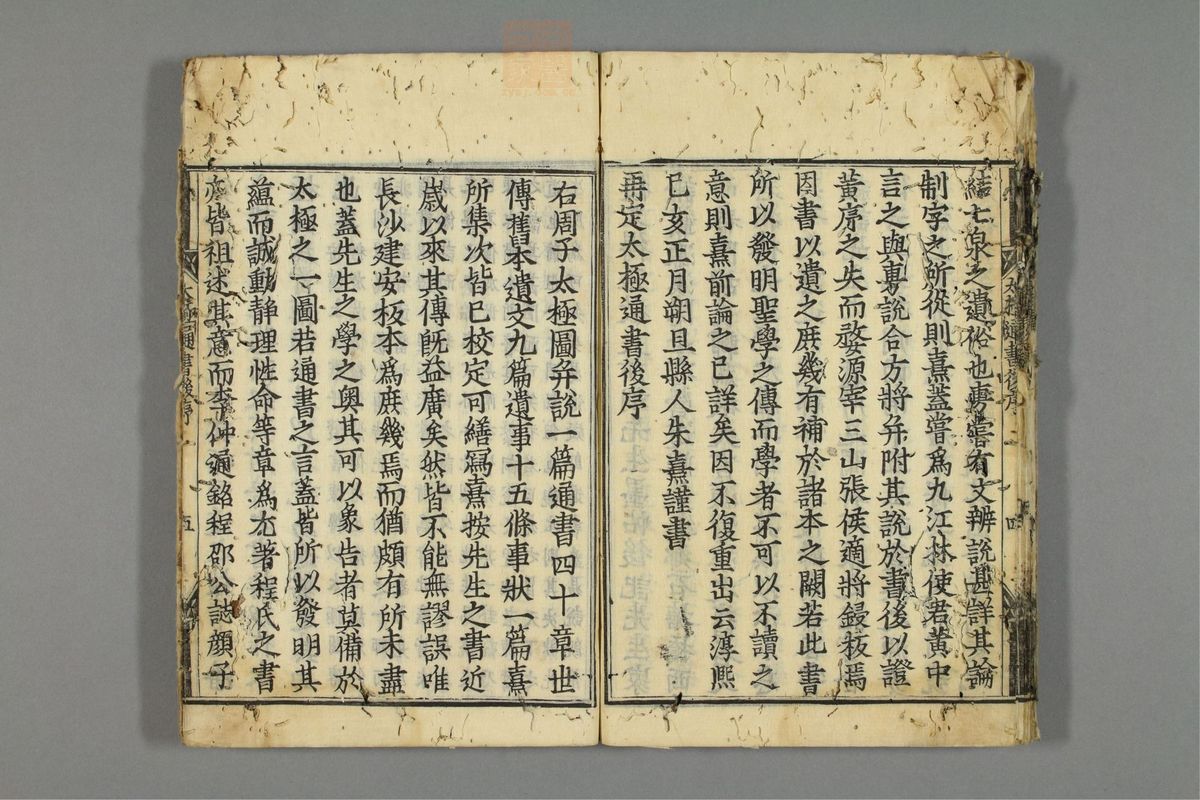 結七泉之遺俗也專嘗有文辨說甚詳其論
制字之所從則熹蓋嘗爲九江林使君黄中
言之與專說合方將并附其說於書後以證
黄序之失而婺源宰三山張侯適將鋟板焉
因書以遺之庶幾有補於諸本之闕若此書
所以發明聖學之傳而學者不可以不讀之
意則熹前論之已詳矣因不復重出云淳熙
己亥正月朔旦縣人朱熹謹書
再定太極通書後序
右周子太極圖并說一篇通書四十章世
傳舊本遺文九篇遺事十五條事狀一篇熹
所集次皆已校定可繕寫熹按先生之書近
歲以來其傳旣益廣矣然皆不能無謬誤唯
長沙建安板本爲庶幾焉而猶頗有所未盡
也蓋先生之學之奥其可以象告者莫備於
太極之一圖若通書之言蓋皆所以發明其
蘊而誠動靜理性命等章爲尤著程氏之書
亦皆祖述其意而李仲通銘程邵公誌顔子
太極通書後序
五
太極通書後序
四